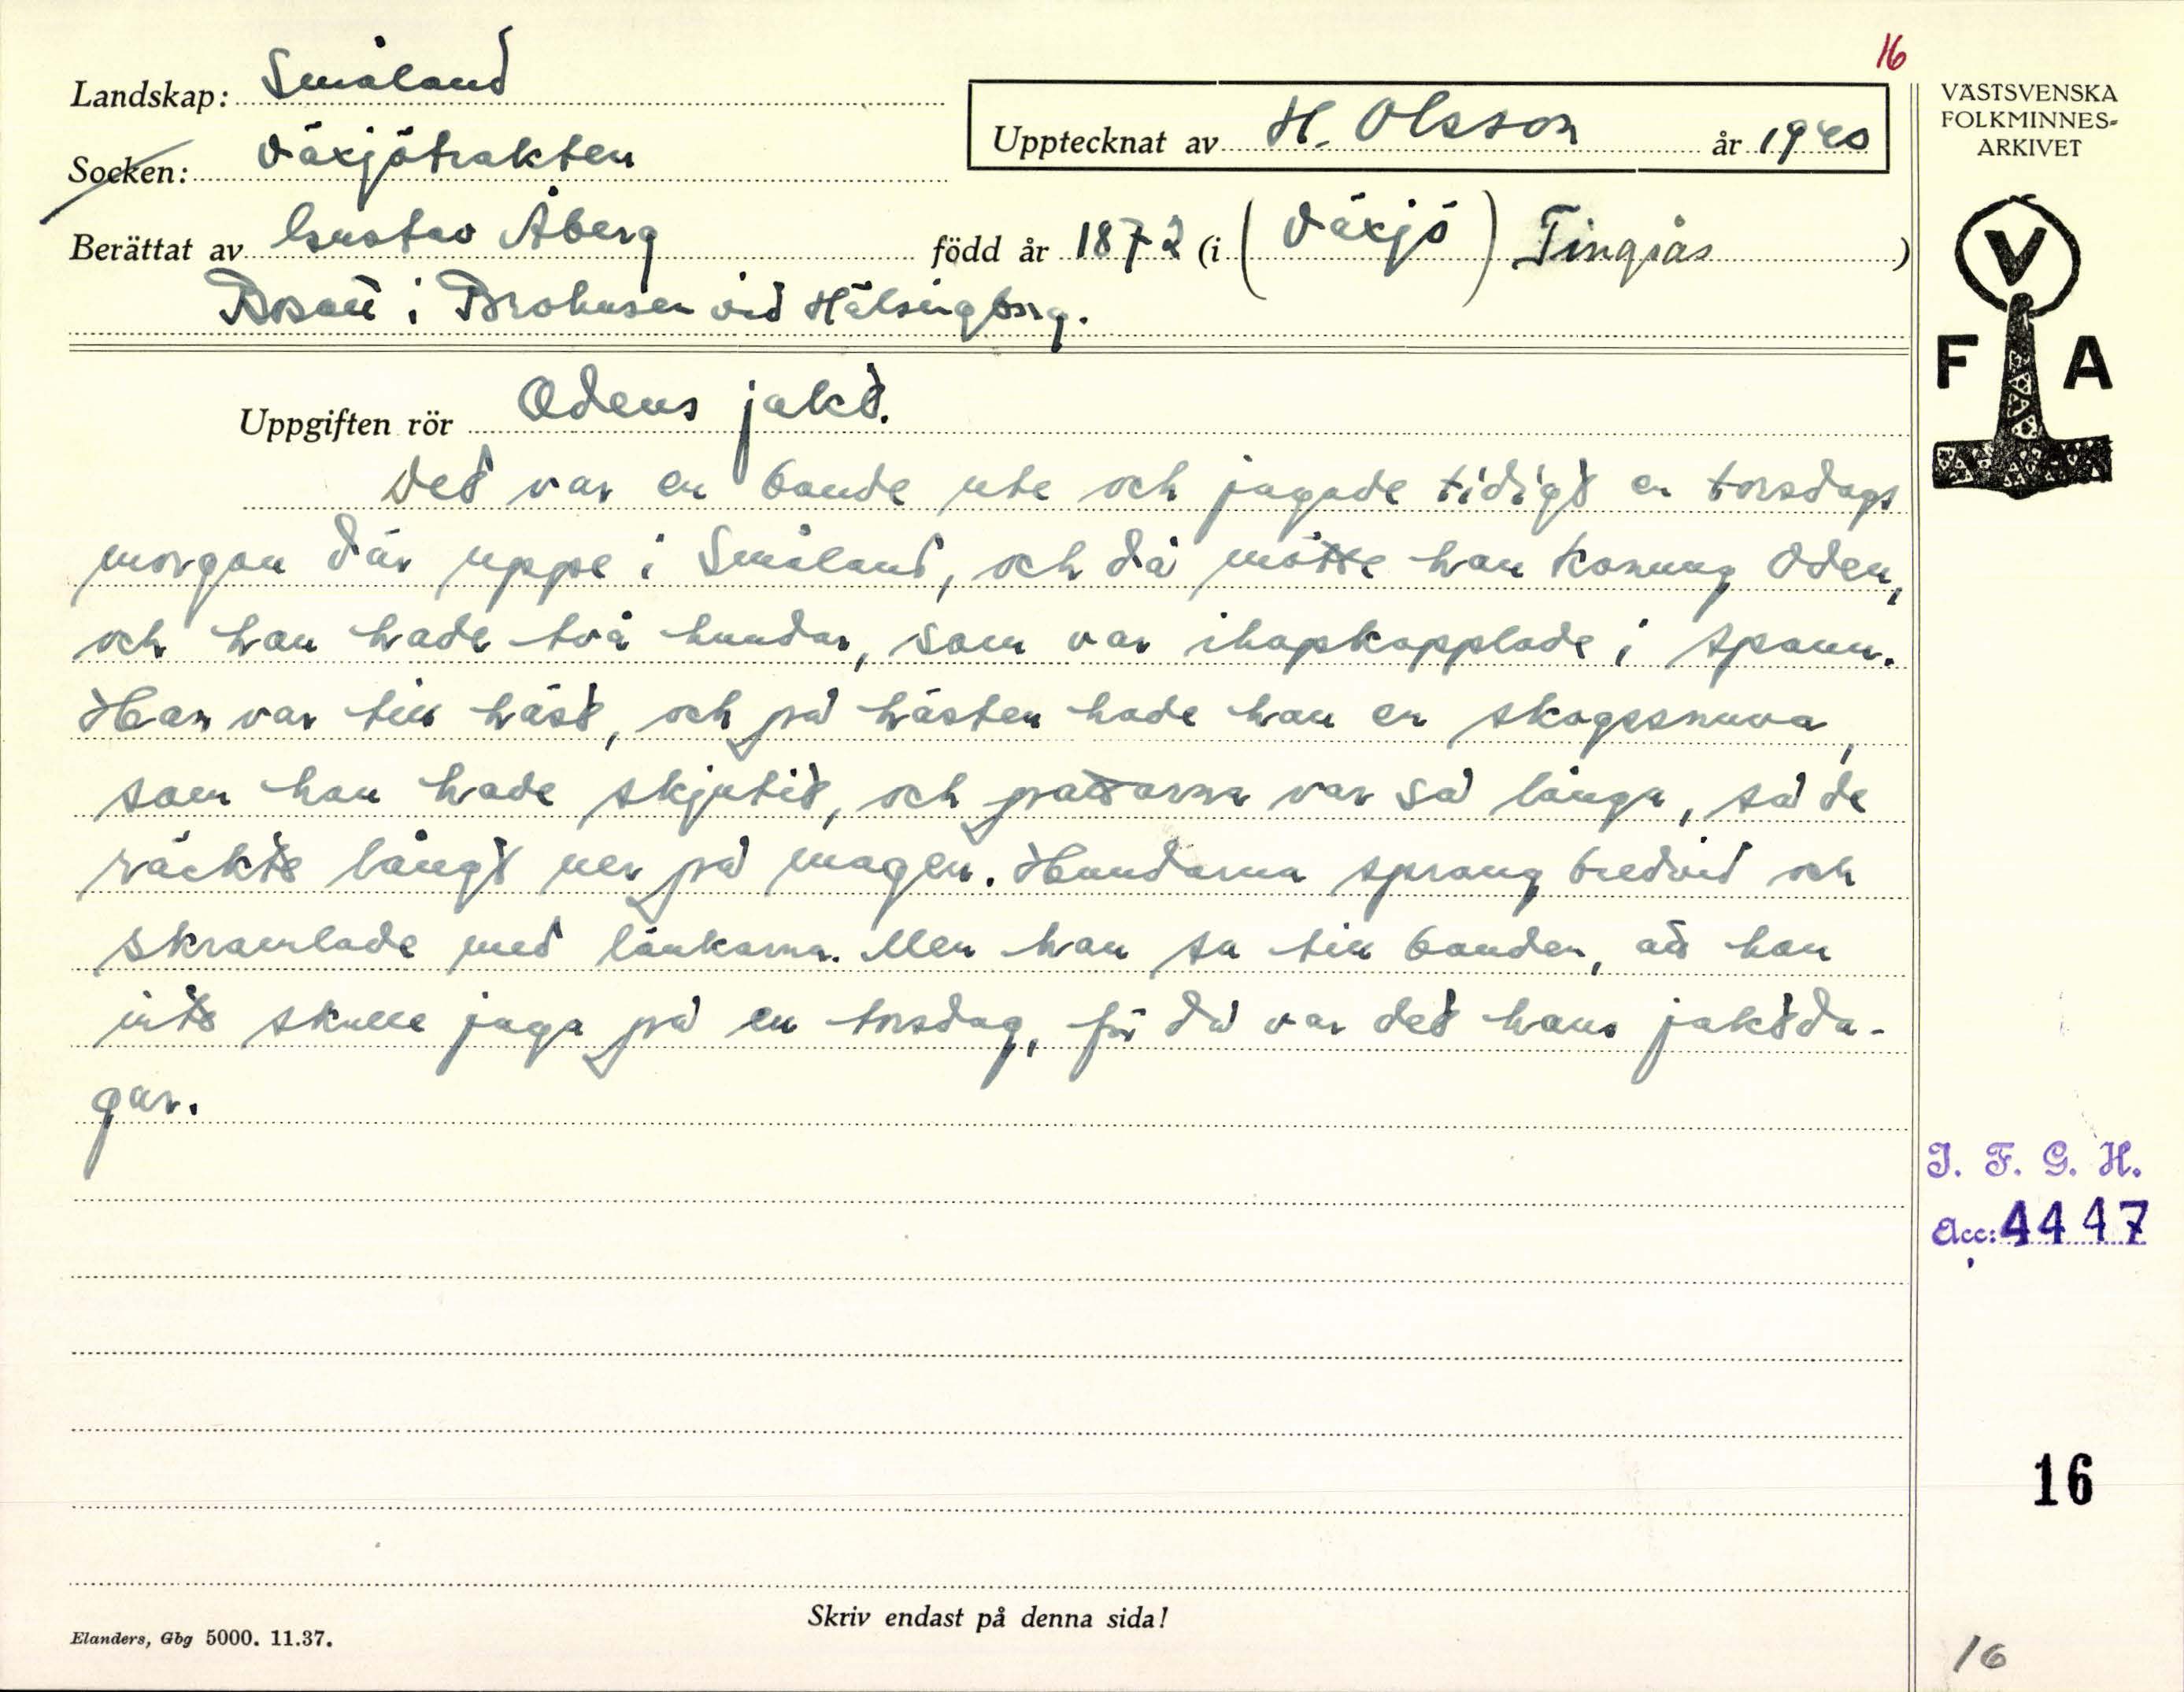 16
Landskap: Småland
Socken: Växjötrakten
Upptecknat av H. Olsson år 1940
Berättat av Gustav Åberg född år 1872 (i (Växjö) Tingsås)
Bosatt i Brohusen vid Hälsingborg.
VÄSTSVENSKA
FOLKMINNES-
ARKIVET
V
F A
Uppgiften rör Odens jakt.
Det var en bonde ute och jagade tidigt en torsdags
morgon där uppe i Småland, och då mötte han konung Oden,
och han hade två hundar, som var ihopkopplade i spann.
Han var till häst, och på hästen hade han en skogssnuva,
som han hade skjutit, och pattarna var så långa, så de
räckte långt ner på magen. Hundarna sprang bredvid och
skramlade med länkarna. Men han sa till bonden, att han
inte skulle jaga på en torsdag, för då var det hans jaktda-
gar.
I. F. G. H.
Acc: 4447
16
Skriv endast på denna sida!
Elanders, Gbg 5000. 11.37.
16